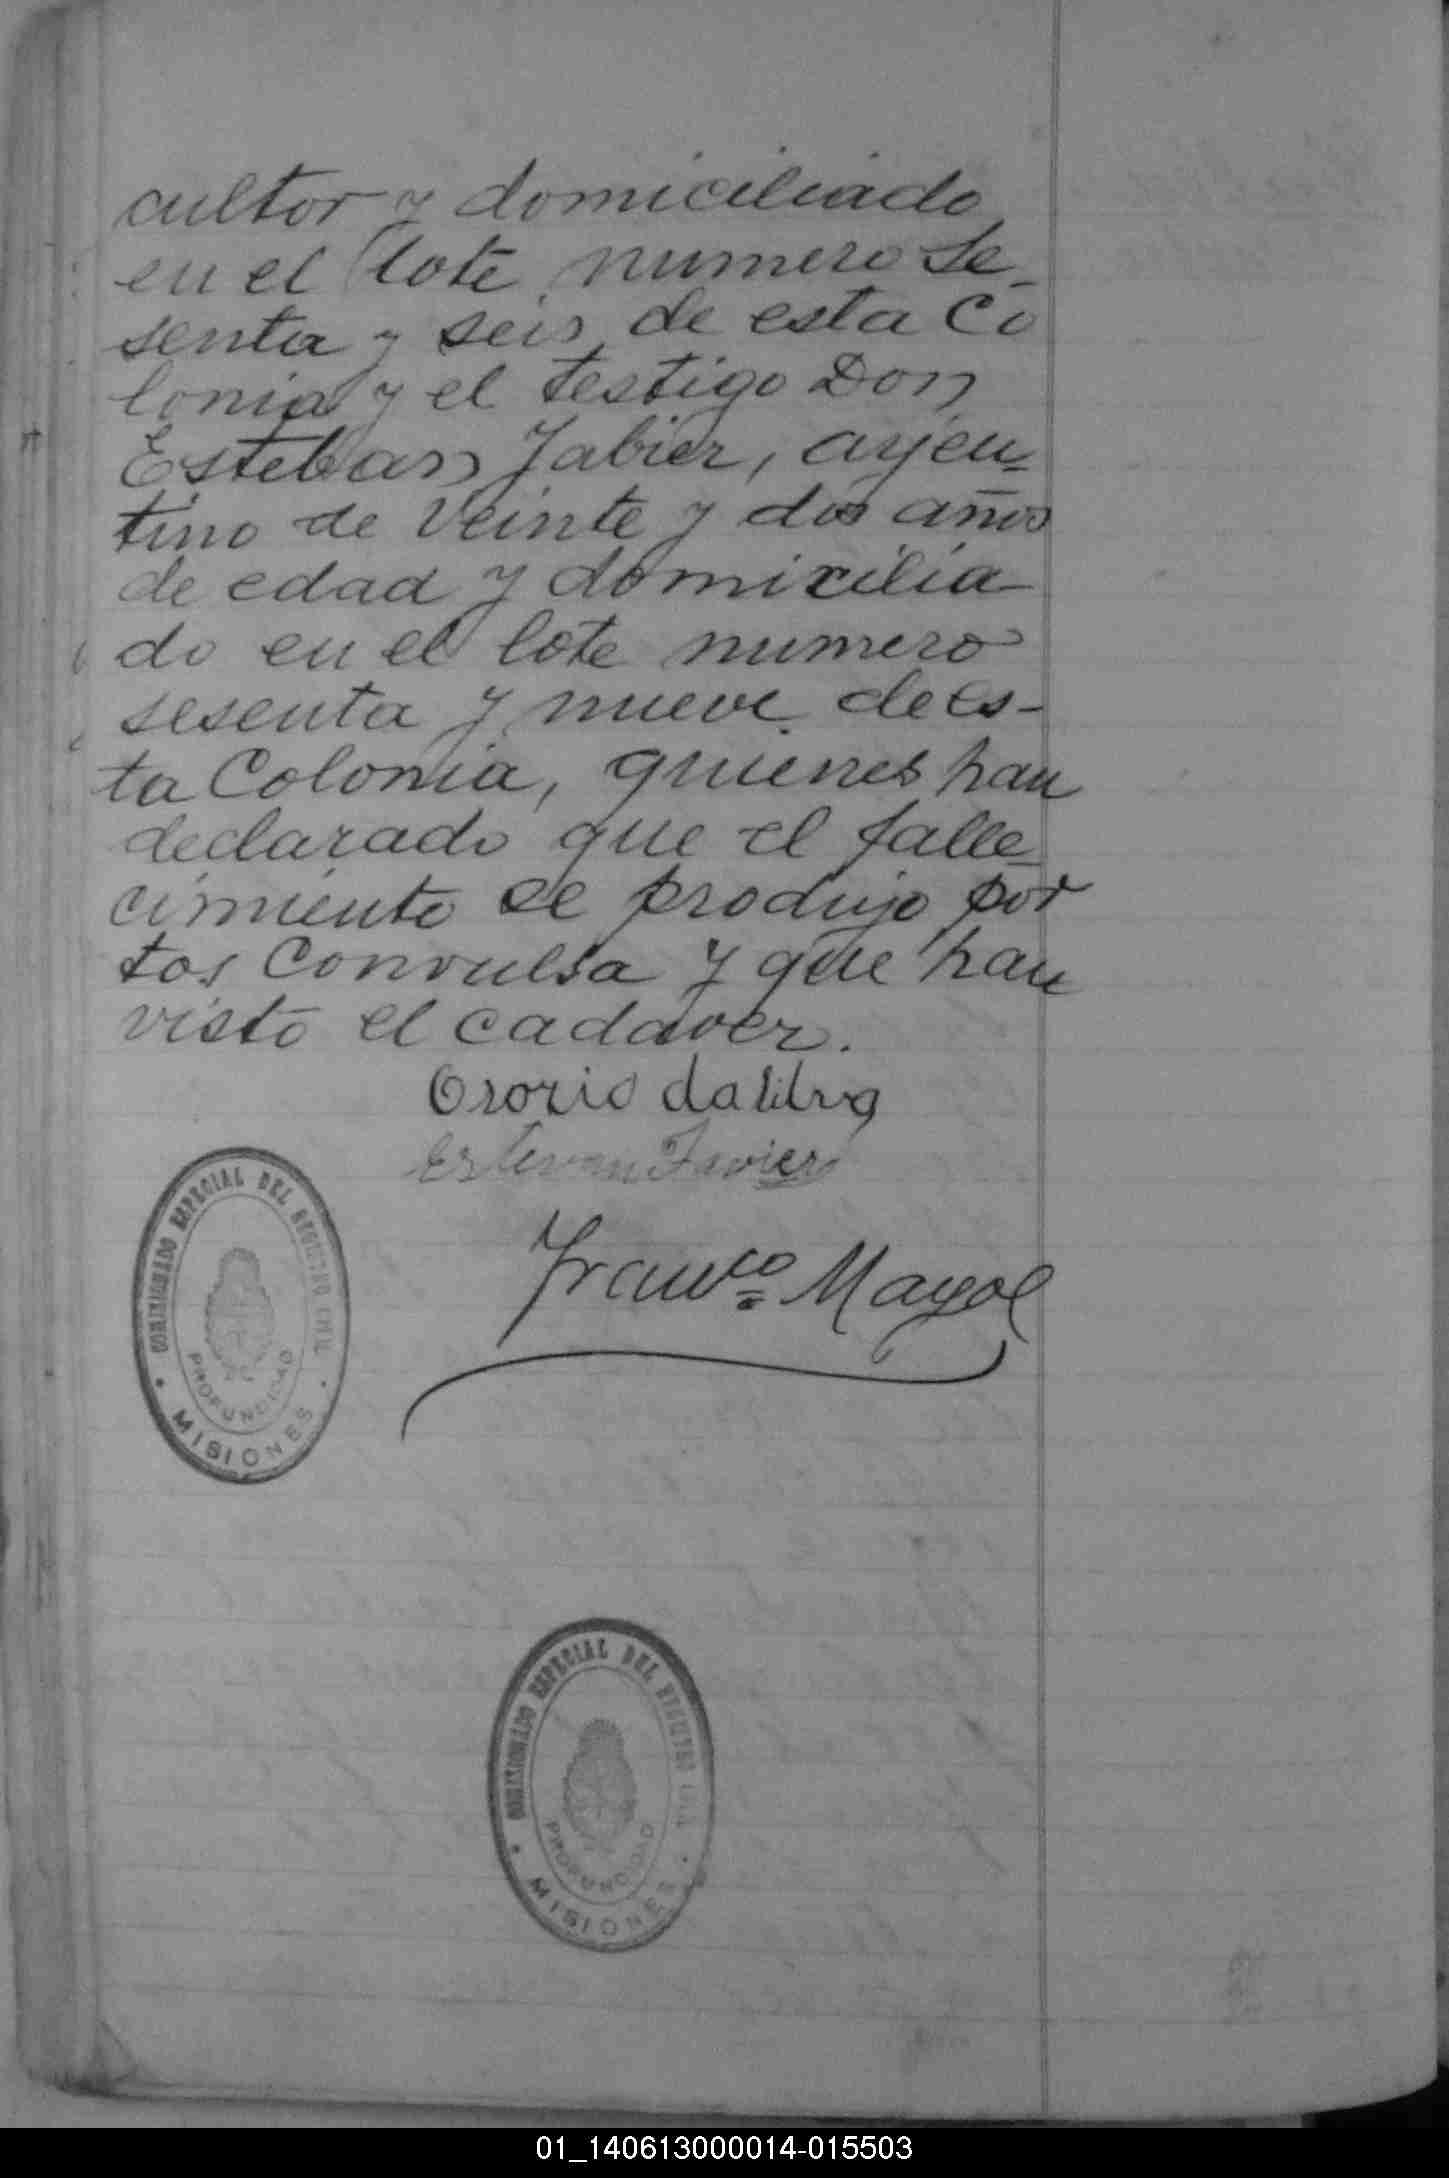 cultor y domiciliado
en el lote numero Se-
senta y seis de esta Co
lonia y el testigo Don
Esteban Jabier, arjen-
tino de veinte y dos años
de edad y domicilia
do en el lote numero
sesenta y nueve de es-
ta Colonia, quienes han
declarado que el falle-
cimiento se produjo por
tos Convulsa y que han
visto el cadaver.
Osorio da
Estevan Javier
Franco Mayol
COMISIONADO ESPECIAL DEL REGISTRO CIVIL
PROFUNDIDAD
MISIONES
COMISIONADO ESPECIAL DEL REGISTRO CIVIL
PROFUNDIDAD
MISIONES
01_140613000014-015503